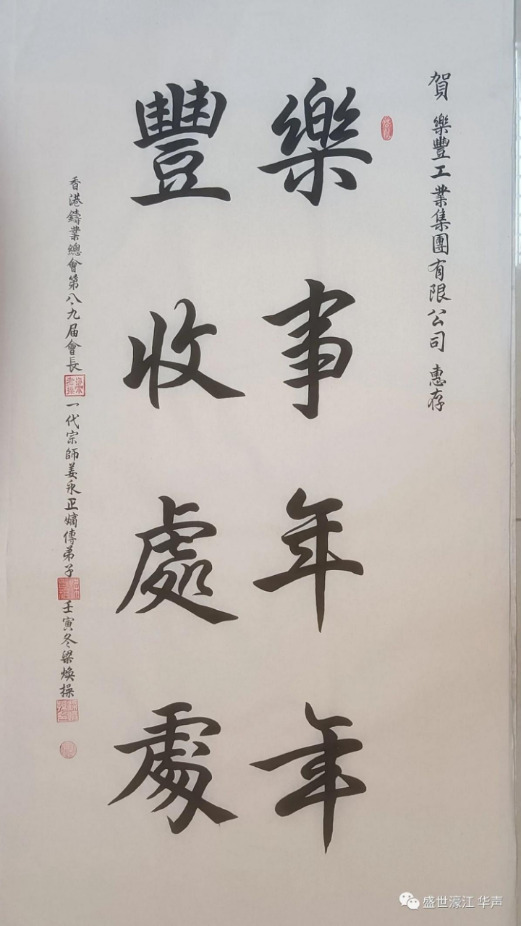 賀 樂豐工業集團有限公司 惠存
樂事年年
豐收處處
香港鑄業總會第八、九屆會長 一代宗師姜永正嫡傳弟子 壬寅冬梁煥操
盛世濠江 华声